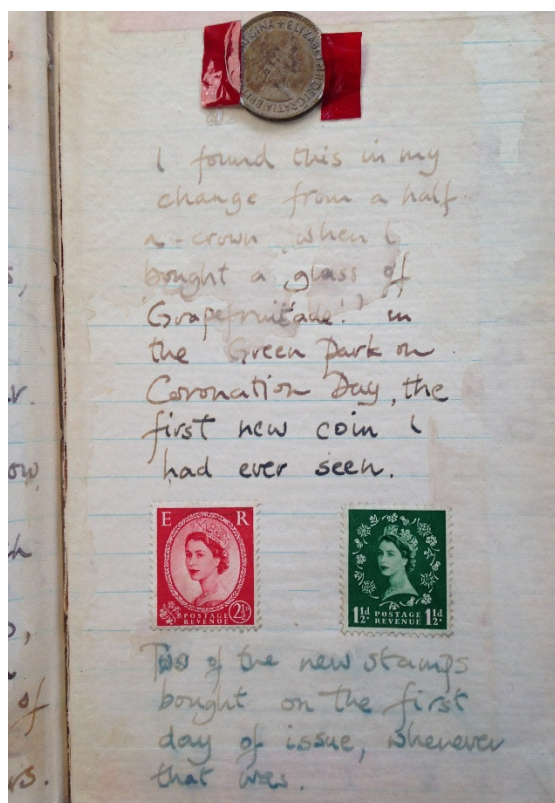 REGINA + ELIZABETH II DEI GRATIA
I found this in my
change from a half
a-crown, when I
bought a glass of
'Grapefruit'ade!' in
the Green Park on
Coronation Day, the
first new coin I
had ever seen.
E R
POSTAGE
REVENUE 2½
1½d POSTAGE 1½d
REVENUE
Two of the new stamps
bought on the first
day of issue, whenever
that was.